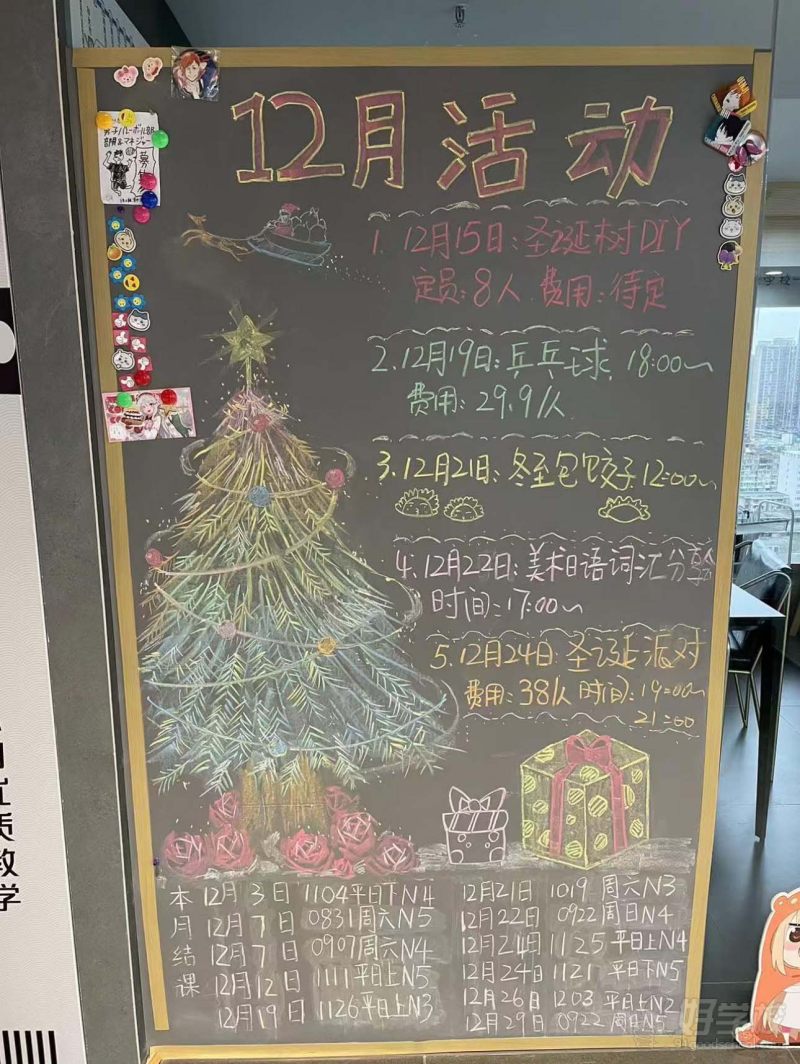 12月活动
1. 12月15日:圣诞树DIY
定员:8人 费用:待定
2. 12月19日:乒乓球 18:00~
费用:29.9/人
3. 12月21日:冬至包饺子12:00~
4. 12月22日:美术日语词汇分享会
时间:17:00~
5. 12月24日:圣诞派对
费用:38/人 时间:19:00~
21:00
本月结课
12月3日 1104平日下N4
12月7日 0831周六N5
12月7日 0907周六N4
12月12日 1111平日上N5
12月19日 1126平日上N3
12月21日 1019 周六N3
12月22日 0922 周日N4
12月24日 1125 平日上N4
12月24日 1121 平日下N5
12月26日 1203 平日上N2
12月29日 0922 周日N5
质教学
学校
好学校